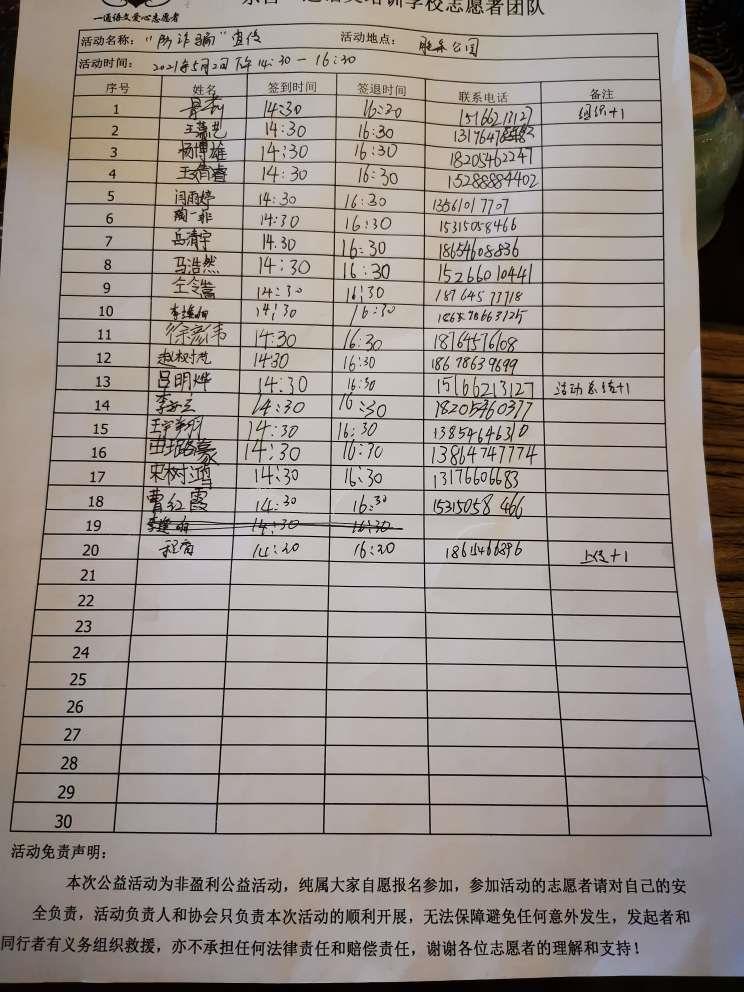 一通语文爱心志愿者
培训学校志愿者团队
活动名称："防诈骗"宣传 活动地点： 公园
活动时间：2021年5月2日下午14:30-16:30
序号 姓名 签到时间 签退时间 联系电话 备注
1 14:30 16:30 15166213127 组织+1
2 14:30 16:30
3 杨博雄 14:30 16:30 18205462247
4 14:30 16:30 15288884402
5 闫雨婷 14:30 16:30 13561017707
6 陶一菲 14:30 16:30 15315058466
7 岳清宇 14:30 16:30 18654608836
8 马浩然 14:30 16:30 15266010441
9 14:30 16:30
10 14:30 16:30 18678663125
11 徐彦伟 14:30 16:30 18764576108
12 14:30 16:30 18678639699
13 吕明烨 14:30 16:30 15166213127 活动总结+1
14 14:30 16:30 18205460377
15 14:30 16:30 13854646310
16 14:30 16:30 13864747774
17 宋树鸿 14:30 16:30 13176606683
18 曹红霞 14:30 16:30 15315058466
19 14:30 16:30
20 14:20 16:20 上传+1
21
22
23
24
25
26
27
28
29
30
活动免责声明：
本次公益活动为非盈利公益活动，纯属大家自愿报名参加，参加活动的志愿者请对自己的安
全负责，活动负责人和协会只负责本次活动的顺利开展，无法保障避免任何意外发生，发起者和
同行者有义务组织救援，亦不承担任何法律责任和赔偿责任，谢谢各位志愿者的理解和支持！